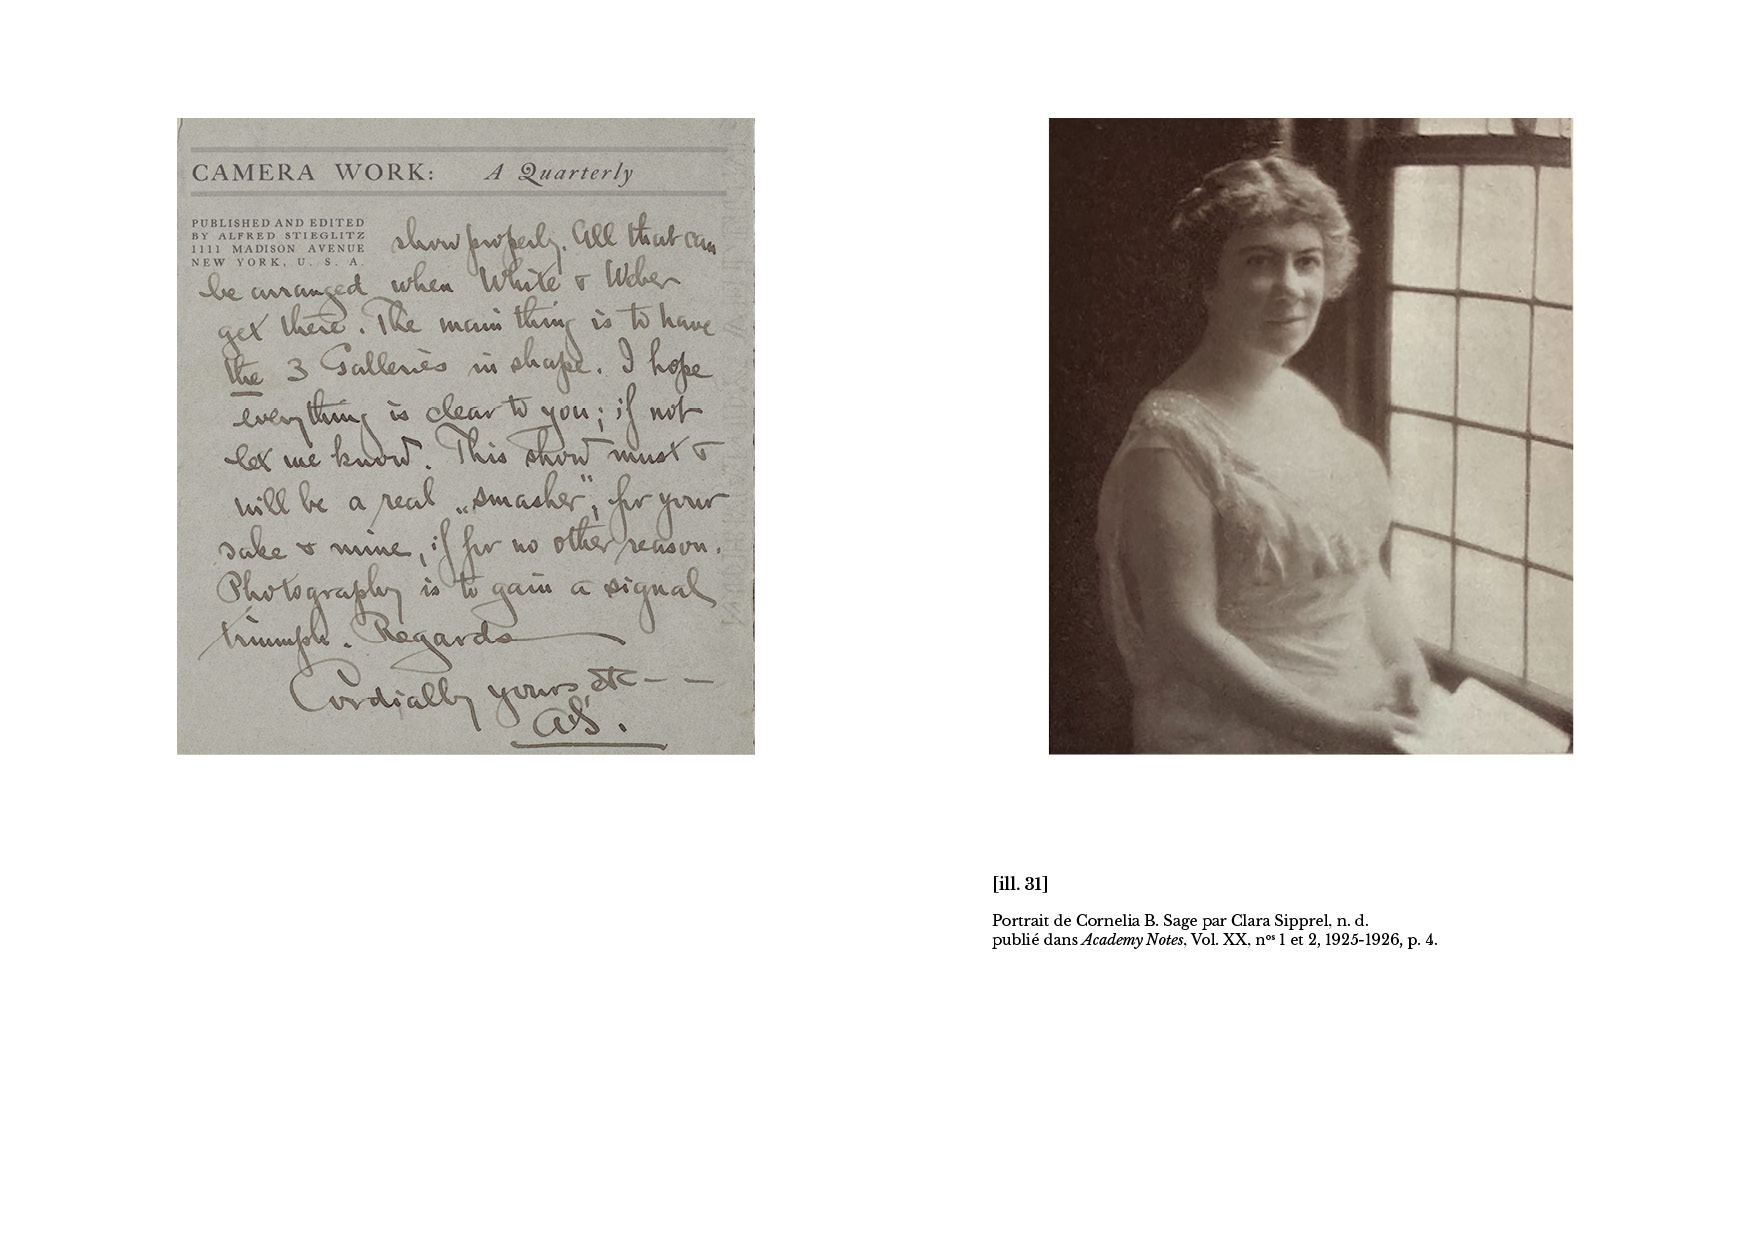 CAMERA WORK: A Quarterly
PUBLISHED AND EDITED
BY ALFRED STIEGLITZ
1111 MADISON AVENUE
NEW YORK, U. S. A.
show properly. All that can
be arranged when White & Weber
get there. The main thing is to have
the 3 Galleries in shape. I hope
everything is clear to you; if not
let me know. This show must &
will be a real „smasher", for your
sake & mine, if for no other reason.
Photography is to gain a signal
triumph. Regards
Cordially yours etc - -
AS.
[ill. 31]
Portrait de Cornelia B. Sage par Clara Sipprel, n. d.
publié dans Academy Notes, Vol. XX, nos 1 et 2, 1925-1926, p. 4.